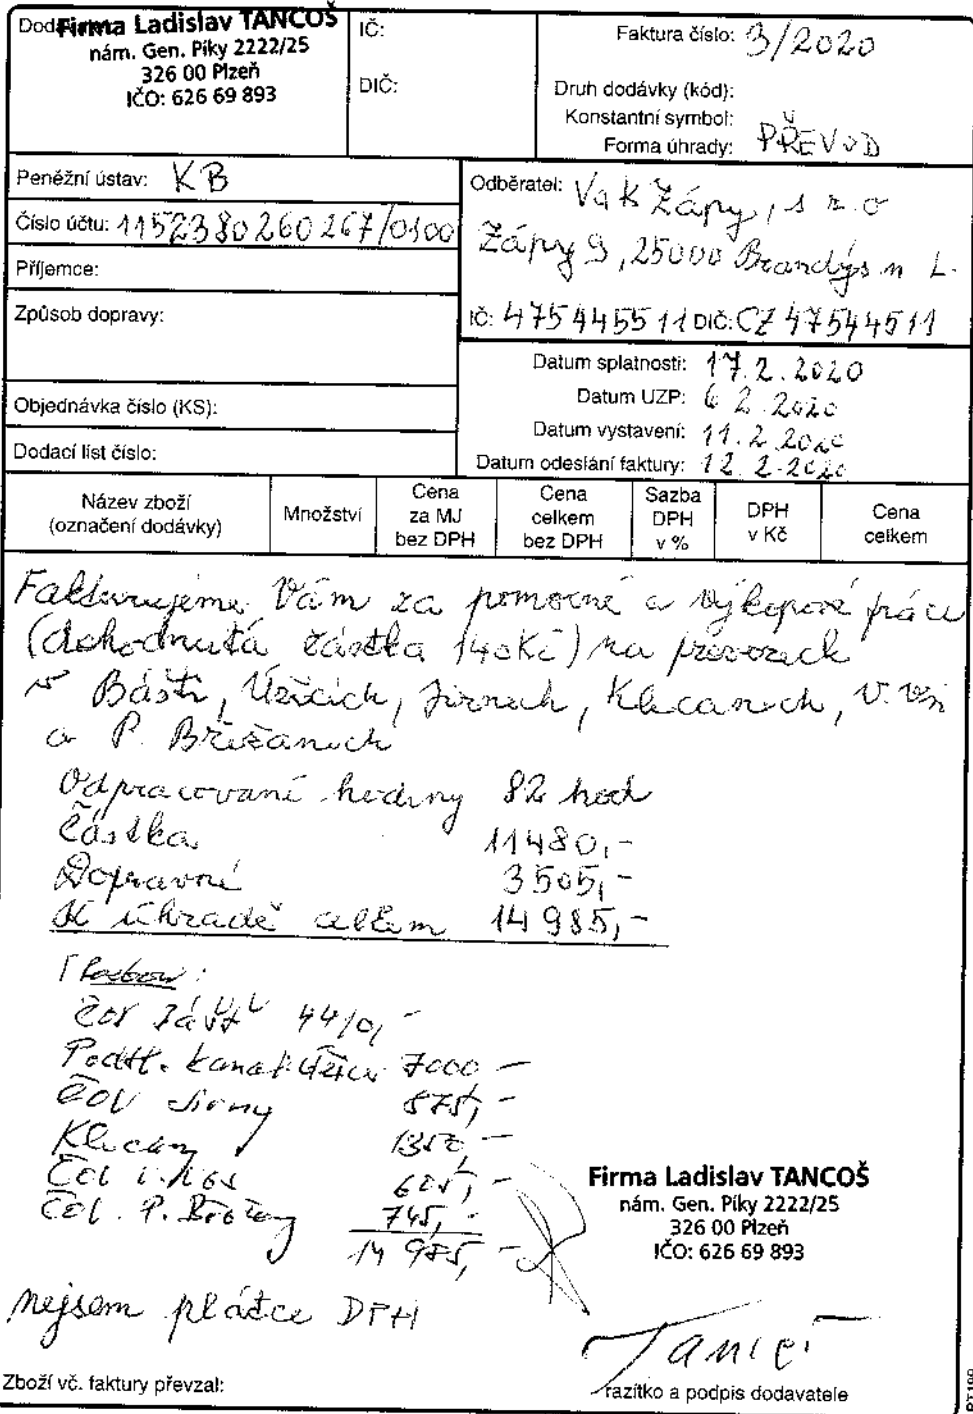 Firma Ladislav TANCOŠ
nám. Gen. Píky 2222/25
326 00 Plzeň
IČO: 626 69 893
IČ:
DIČ:
Faktura číslo: 3/2020
Druh dodávky (kód):
Konstantní symbol:
Forma úhrady: PŘEVOD
Peněžní ústav: KB
Číslo účtu: 1152380260267/0100
Příjemce:
Způsob dopravy:
Objednávka číslo (KS):
Dodací list číslo:
Odběratel: VaK Zápy, s r. o
Zápy 9, 25000 Brandýs n L.
IČ: 4754455 11 DIČ: CZ 47544511
Datum splatnosti: 17. 2. 2020
Datum UZP: 6 2. 2020
Datum vystavení: 11. 2. 2020
Datum odeslání faktury: 12. 2. 2020
Název zboží
(označení dodávky)
Množství
Cena
za MJ
bez DPH
Cena
celkem
bez DPH
Sazba
DPH
v %
DPH
v Kč
Cena
celkem
Fakturujeme Vám za pomocné a výkopové práce
(dohodnutá částka 140Kč) na provozech
v Bášti, Úžicích, Jirnech, Klecanech, V. vsi
a P. Břežanech
Odpracované hodiny 82 hod
Částka 11480,-
Dopravné 3505,-
K úhradě celkem 14 985,-
ČOV 4410,-
Podtl. kanal. Úžice 7000 -
ČOV Jirny 875,-
Klecany 1350,-
ČOV 605,-
ČOV. P. Břežany 745,-
14 985,-
nejsem plátce DPH
Firma Ladislav TANCOŠ
nám. Gen. Píky 2222/25
326 00 Plzeň
IČO: 626 69 893
Zboží vč. faktury převzal:
razítko a podpis dodavatele